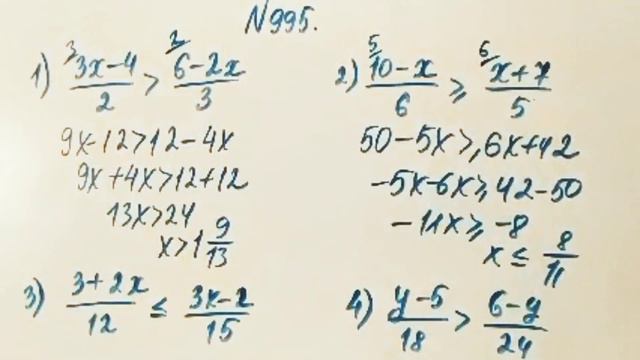 N995.
1) ³⁄ (3x-4)/2 > ²⁄ (6-2x)/3
9x-12>12-4x
9x+4x>12+12
13x>24
x>1 9/13
2) ⁵⁄ (10-x)/6 ≥ ⁶⁄ (x+7)/5
50-5x≥6x+42
-5x-6x≥42-50
-11x≥-8
x≤ 8/11
3) (3+2x)/12 ≤ (3x-2)/15
4) (y-5)/18 > (6-y)/24